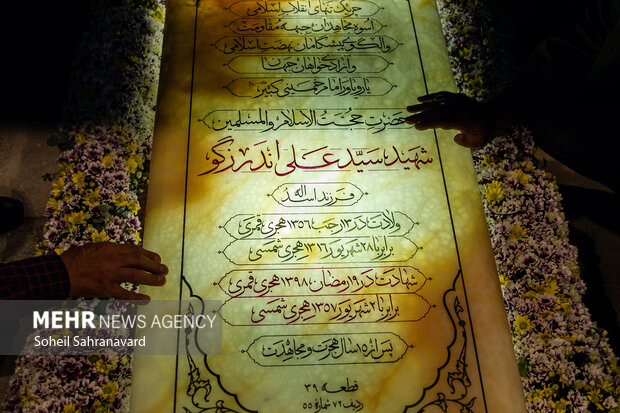 چریک تنهای انقلاب اسلامی
اسوه مجاهدان جبهه مقاومت
والگوی پیشگامان نهضت اسلامی
و آزادیخواهان جهان
یار وفادار امام خمینی کبیر(ره)
حضرت حجت الاسلام والمسلمین
شهید سید علی اندرزگو
فرزند اسدالله
ولادت در ۱۳ رجب ۱۳۵۶ هجری قمری
برابر با ۲۸ شهریور ۱۳۱۶ هجری شمسی
شهادت در ۱۹ رمضان ۱۳۹۸ هجری قمری
برابر با ۲ شهریور ۱۳۵۷ هجری شمسی
پس از ۱۵ سال هجرت و مجاهدت
قطعه ۳۹
ردیف ۷۲ شماره ۵۵
MEHR NEWS AGENCY
Soheil Sahranavard